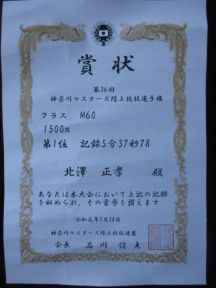 賞状
第36回
神奈川マスターズ陸上競技選手権
クラス M60
1500m
第1位 記録5分37秒78
北澤 正孝 殿
あなたは本大会において上記の記録
を収められ、その栄誉を讃えます
令和元年7月28日
神奈川マスターズ陸上競技連盟
会長 石川 信夫